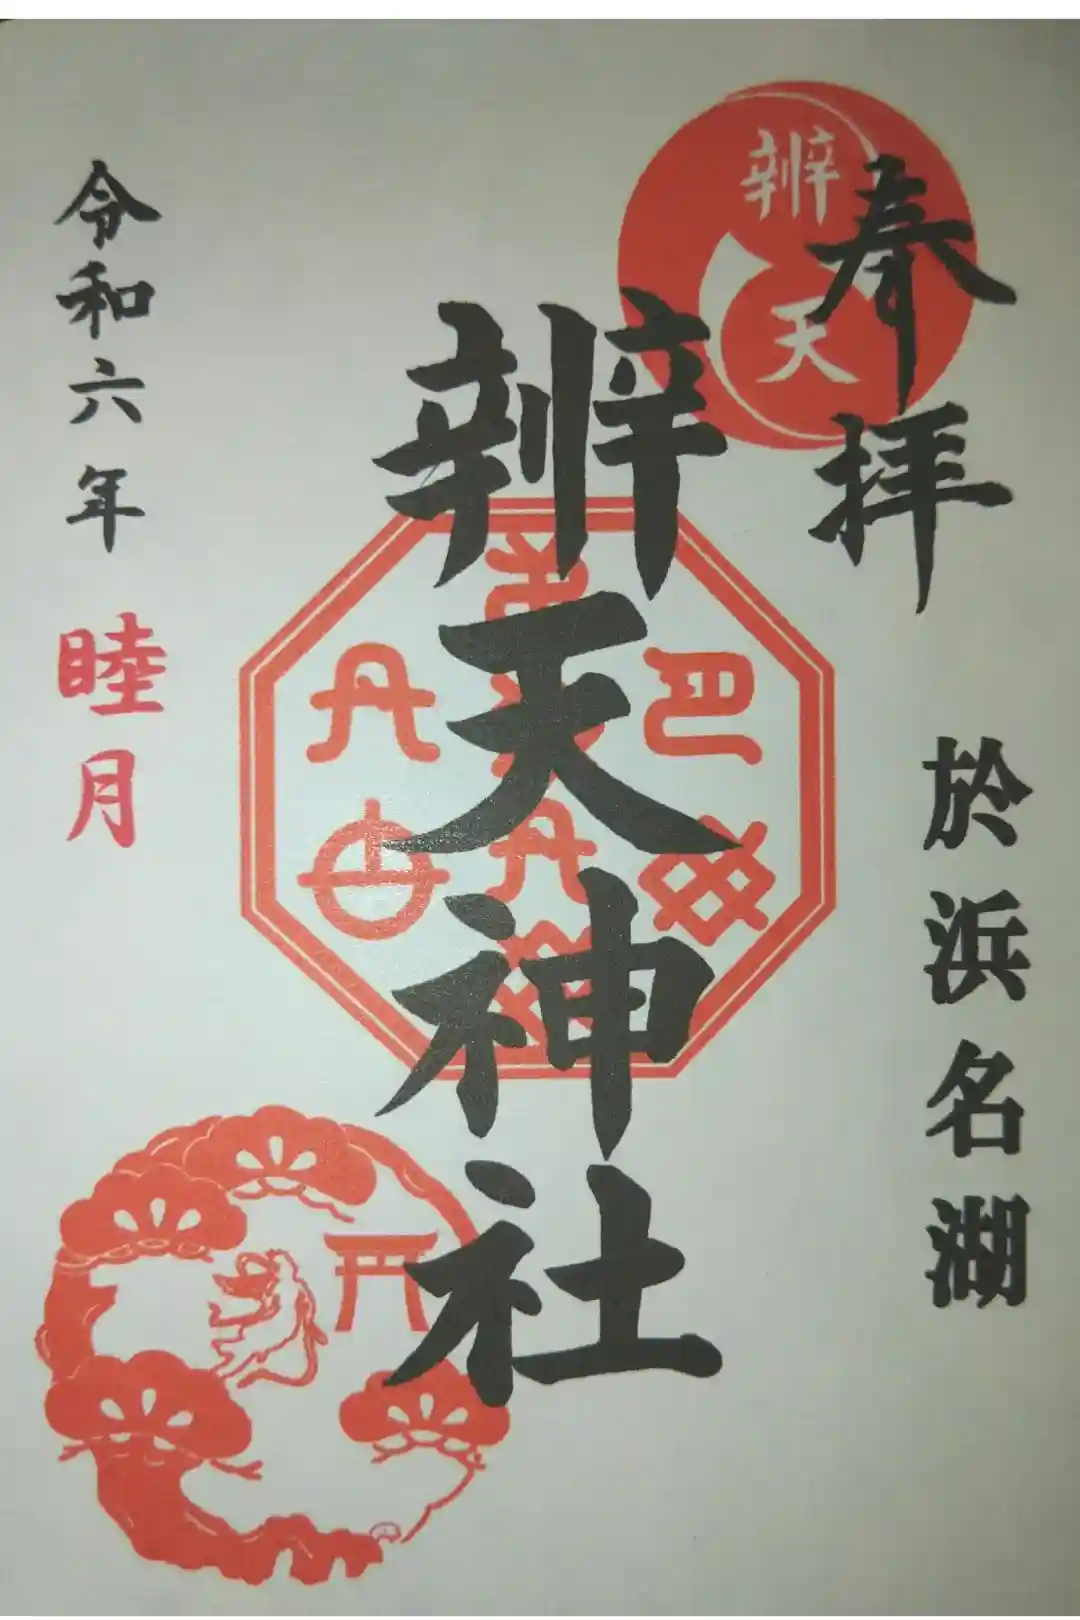 奉拝
於浜名湖
辨天
辨天神社
令和六年 睦月